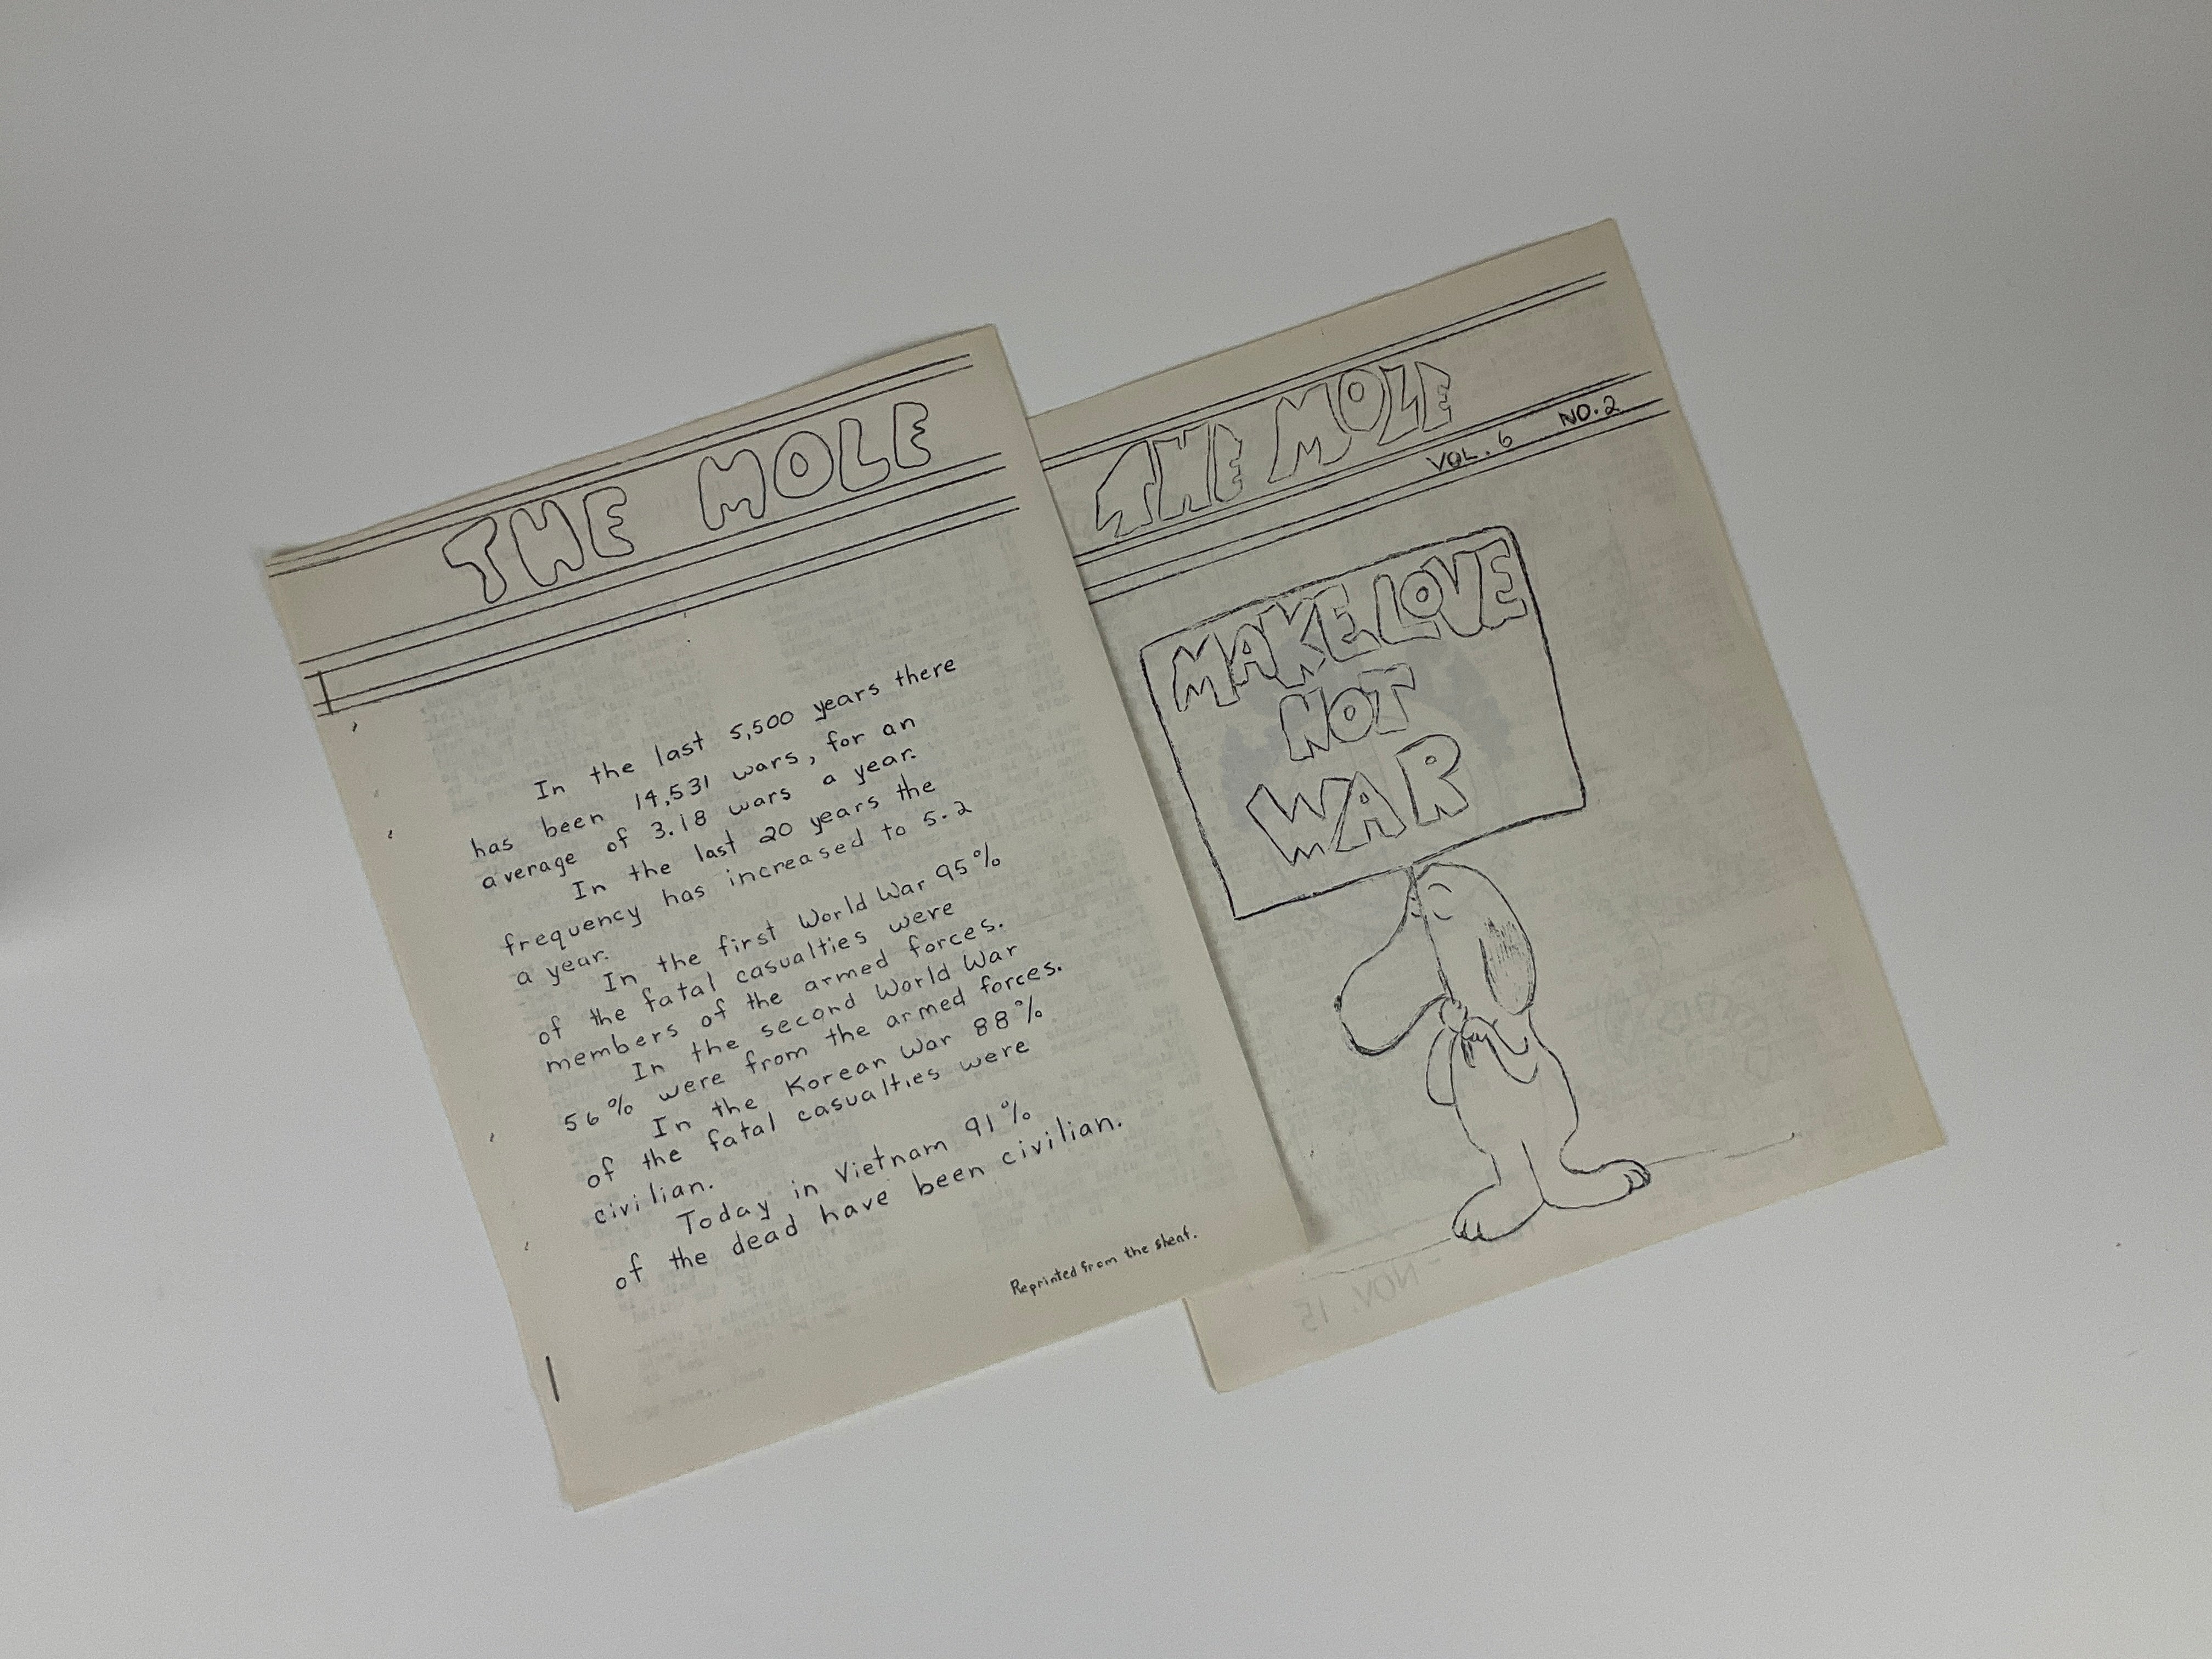 THE MOLE
In the last 5,500 years there
has been 14,531 wars, for an
average of 3.18 wars a year.
In the last 20 years the
frequency has increased to 5.2
a year.
In the first World War 95%
of the fatal casualties were
members of the armed forces.
In the second World War
56% were from the armed forces.
In the Korean War 88%
of the fatal casualties were
civilian.
Today in Vietnam 91%
of the dead have been civilian.
Reprinted from the sheaf.
THE MOLE
VOL. 6 NO. 2
MAKE LOVE
NOT
WAR
NOV. 15